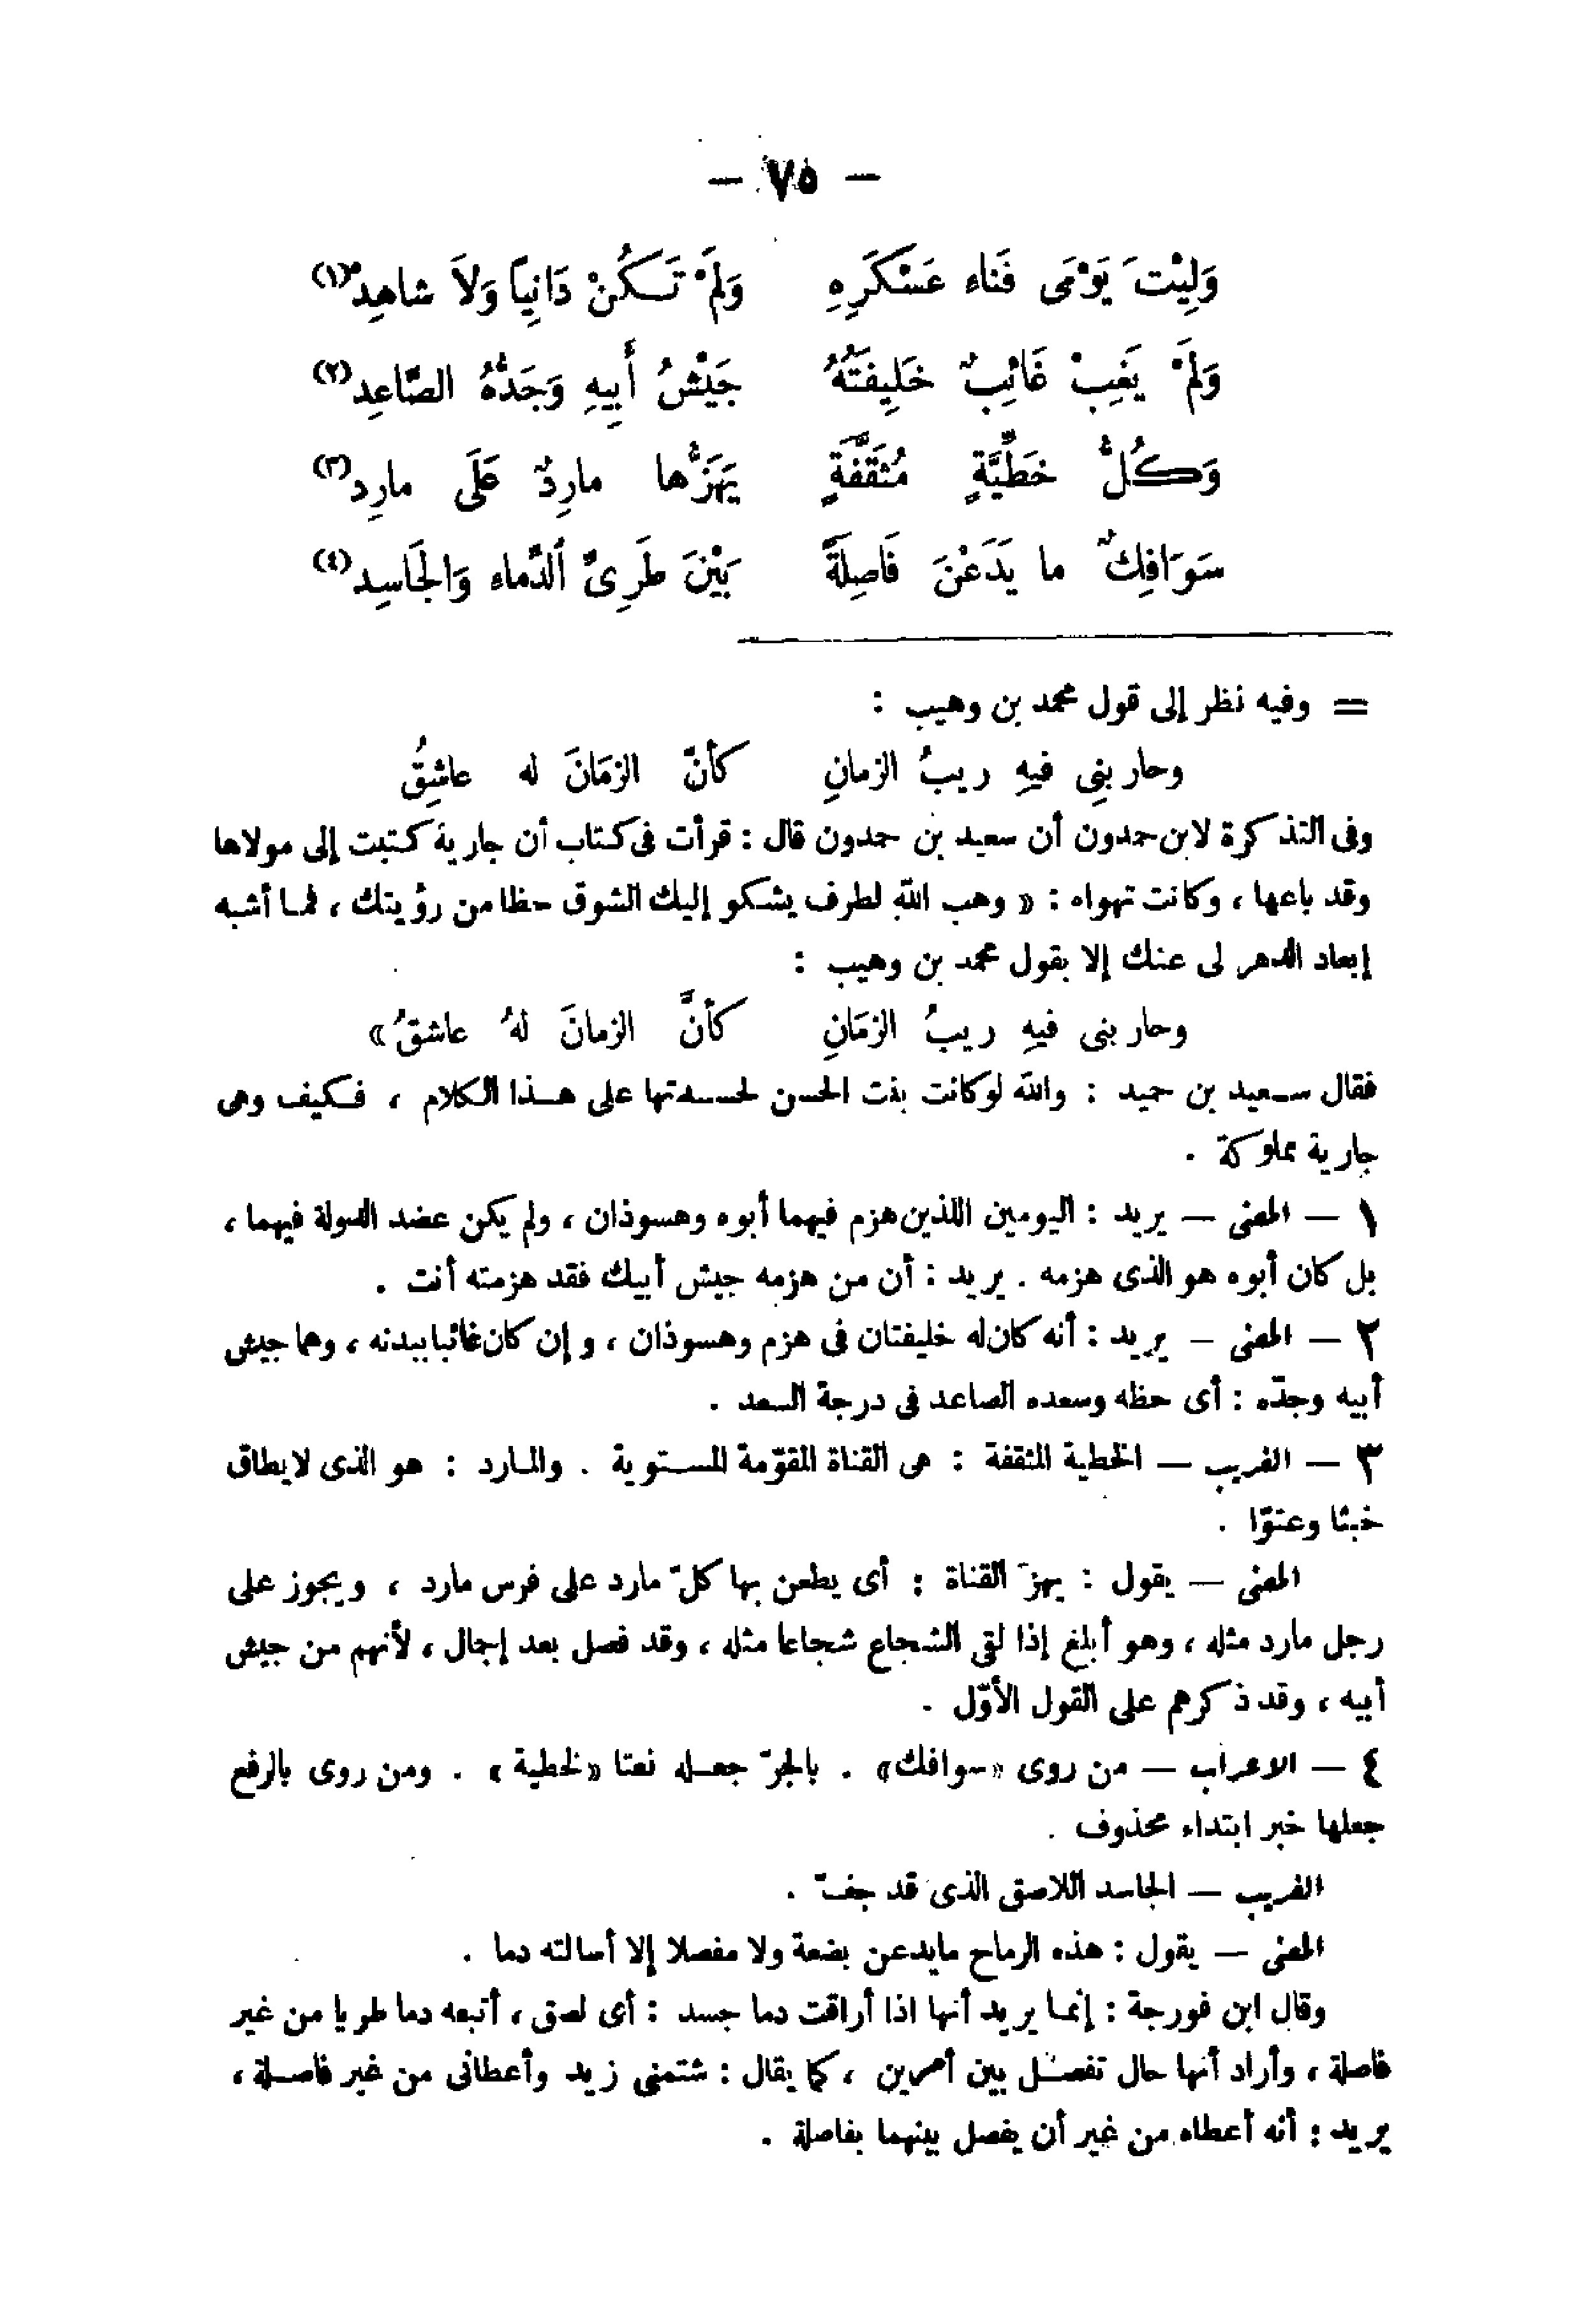 — ٧٥ —
وَلِيْتَ يَوْمَى فَناءِ عَسْكَرِهِ وَلَمْ تَكُنْ دَانِياً وَلاَ شاهِدْ (١)
وَلَمْ يَغِبْ غَائِبٌ خَلِيفَتُهُ جَيْشُ أَبِيهِ وَجَدُّهُ الصَّاعِد (٢)
وَكُلُّ خَطِّيَّةٍ مُثَقَّفَةٍ يَهُزُّها مارِدٌ عَلَى مارِد (٣)
سَوَافِكٌ ما يَدَعْنَ فَاصِلَةً بَيْنَ طَرِىِّ الدِّماءِ وَالجَاسِد (٤)
= وفيه نظر إلى قول محمد بن وهيب :
وحاربنِى فيهِ ريبُ الزمانِ كأنّ الزمَانَ له عاشِقُ
وفى التذكرة لابن حمدون أن سعيد بن حمدون قال : قرأت فى كتاب أن جارية كتبت إلى مولاها
وقد باعها ، وكانت تهواه : « وهب الله لطرف يشكو إليك الشوق حظا من رؤيتك ، فما أشبه
إبعاد الدهر لى عنك إلا بقول محمد بن وهيب :
وحاربنى فيهِ ريبُ الزمَانِ كأنَّ الزمانَ لهُ عاشقُ »
فقال سعيد بن حميد : والله لو كانت بنت الحسن لحسدتها على هذا الكلام ، فكيف وهى
جارية مملوكة .
١ — المعنى — يريد : اليومين اللذين هزم فيهما أبوه وهسوذان ، ولم يكن عضد الدولة فيهما ،
بل كان أبوه هو الذى هزمه . يريد : أن من هزمه جيش أبيك فقد هزمته أنت .
٢ — المعنى — يريد : أنه كان له خليفتان فى هزم وهسوذان ، وإن كان غائبا ببدنه ، وهما جيش
أبيه وجدّه : أى حظه وسعده الصاعد فى درجة السعد .
٣ — الغريب — الخطية المثقفة : هى القناة المقوّمة المستوية . والمارد : هو الذى لا يطاق
خبثا وعتوّا .
المعنى — يقول : يهزّ القناة : أى يطعن بها كلّ مارد على فرس مارد ، ويجوز على
رجل مارد مثله ، وهو أبلغ إذا لقى الشجاع شجاعا مثله ، وقد فصل بعد إجمال ، لأنهم من جيش
أبيه ، وقد ذكرهم على القول الأوّل .
٤ — الاعراب — من روى «سوافك» . بالجرّ جعله نعتا «لخطية» . ومن روى بالرفع
جعلها خبر ابتداء محذوف .
الغريب — الجاسد اللاصق الذى قد جفّ .
المعنى — يقول : هذه الرماح مايدعن بضعة ولا مفصلا إلا أسالته دما .
وقال ابن فورجة : إنما يريد أنها اذا أراقت دما جسد : أى لصق ، أتبعه دما طريا من غير
فاصلة ، وأراد أنها حال تفصل بين أمرين ، كما يقال : شتمنى زيد وأعطانى من غير فاصلة ،
يريد : أنه أعطاه من غير أن يفصل بينهما بفاصلة .